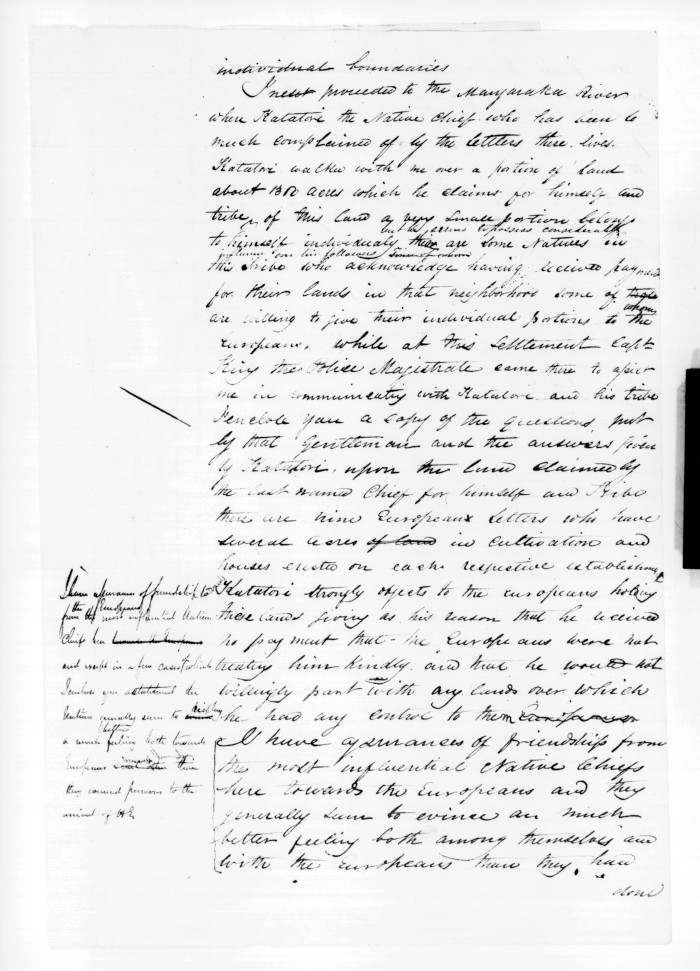 individual boundaries
I next proceeded to the Mangaraka River
when Katatori the Native Chief who has been so
much complained of by the Settlers there, lives.
Katatori walked with me over a portion of land
about 1300 acres which he claims for himself and
tribe, of this land a very small portion belongs
but he seems to possess considerable
to himself individualy, there are some Natives in
influence over his followers
this tribe who acknowledge having received payment
for their lands in that neighborhood some of
whom
are willing to give their individual portions to the
Europeans, while at this Settlement Capt
King the Police Magistrate came there to assist
me in communicating with Katatori and his tribe
I enclose you a copy of the questions put
by that Gentleman and the answers given
by Katatori, upon the land claimed by
the last named Chief for himself and Tribe
there are nine European Settlers who have
several acres of land in cultivation and
houses erected on each respective establishment
Katatori strongly objects to the Europeans holding
these lands giving as his reason that he received
no payment that the Europeans were not
treating him kindly and that he would not
willingly part with any lands over which
he had any control to them
I have assurances of friendship from
the most influential Native Chiefs
here towards the Europeans and they
generally seem to evince an much
better feeling both among themselves and
with the Europeans than they had
done
I have assurances of friendship to
the Europeans
from the most influential Native
Chiefs here
and except in a few cases of which
I enclose you a statement the
Natives generally seem to
better
a much feeling both towards
Europeans than
they evinced previous to the
arrival of HE